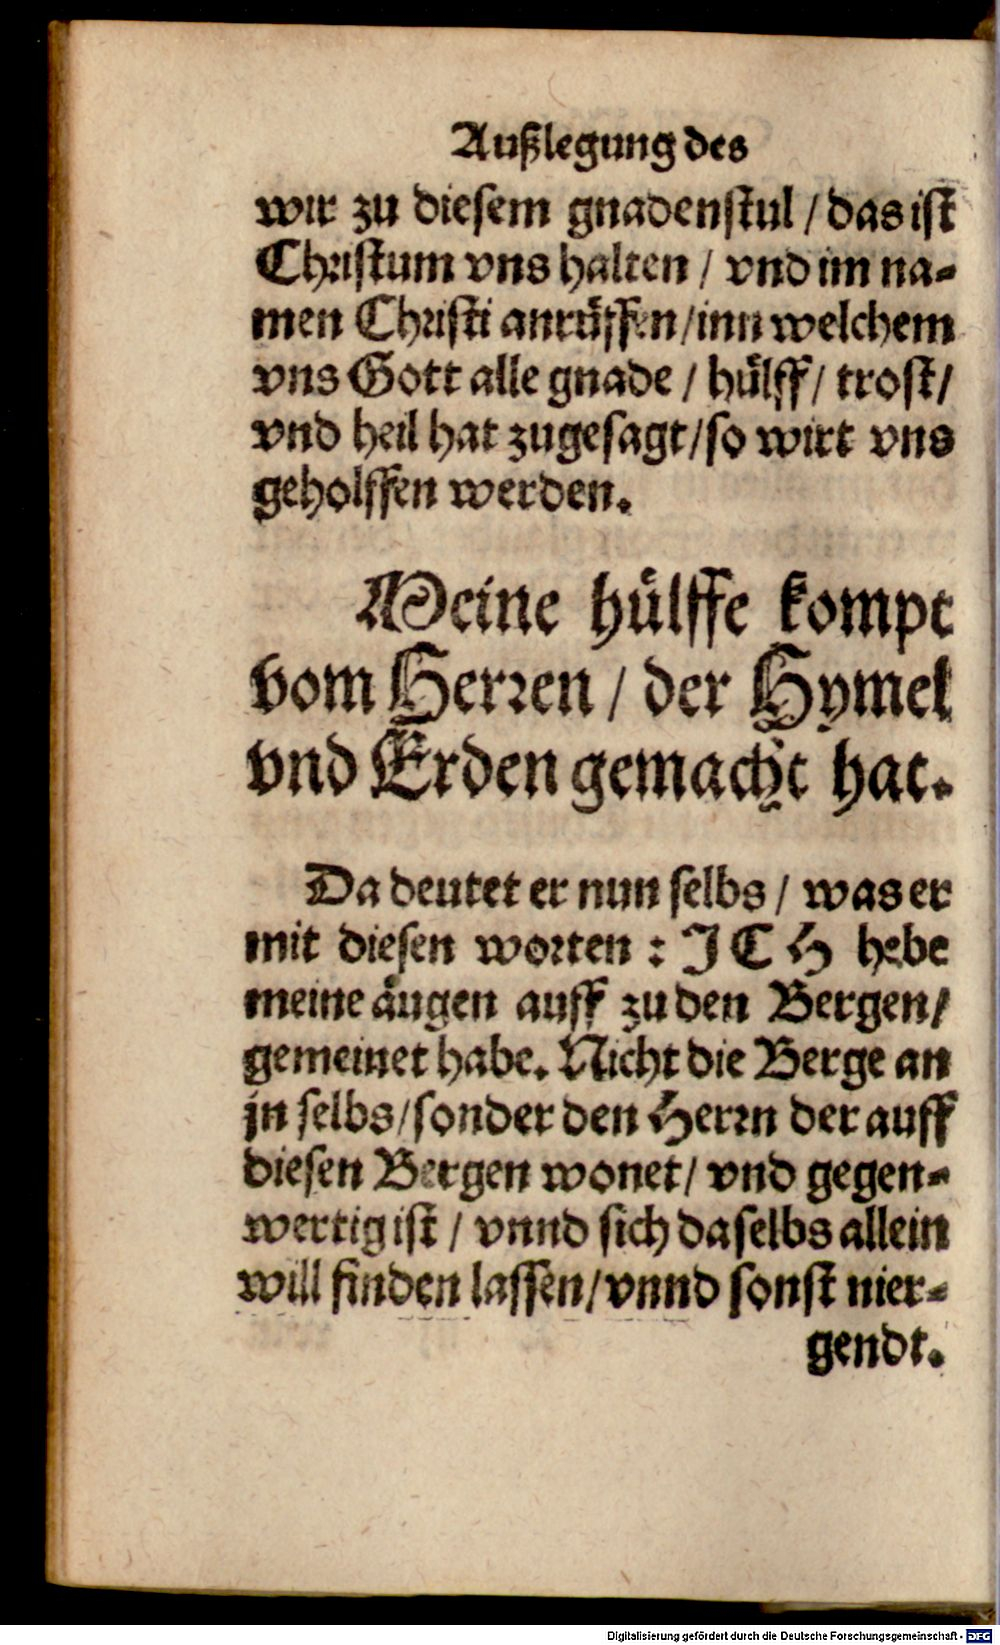 Außlegung des
wir zu diesem gnadenstul / das ist
Christum vns halten / vnd im na-
men Christi anrüffen / inn welchem
vns Gott alle gnade / hülff / trost /
vnd heil hat zugesagt / so wirt vns
geholffen werden.
Meine hülffe kompt
vom Herren / der Hymel
vnd Erden gemacht hat.
Da deutet er nun selbs / was er
mit diesen worten : JCH hebe
meine augen auff zu den Bergen /
gemeinet habe. Nicht die Berge an
jn selbs / sonder den Herrn der auff
diesen Bergen wonet / vnd gegen-
wertig ist / vnnd sich daselbs allein
will finden lassen / vnnd sonst nier-
gendt.
Digitalisierung gefördert durch die Deutsche Forschungsgemeinschaft - DFG